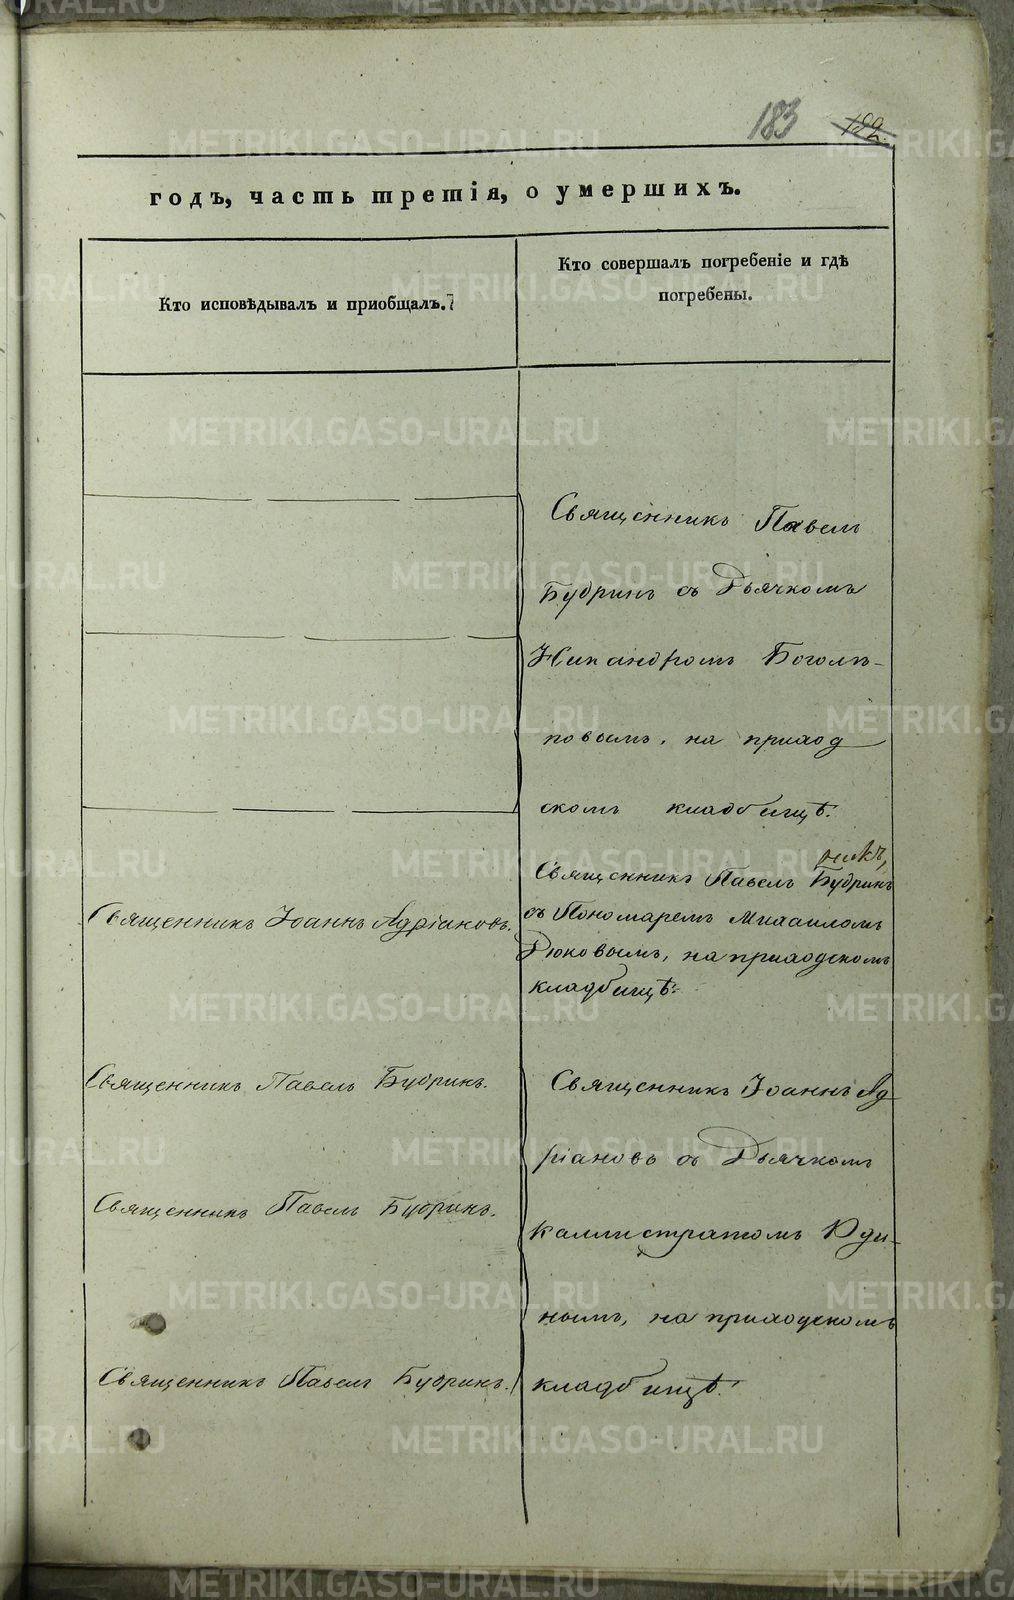 183 182.
годъ, часть третія, о умершихъ.
Кто исповѣдывалъ и приобщалъ.
Кто совершалъ погребеніе и гдѣ
погребены.
Священникъ Павелъ
Будринъ съ Дьячкомъ
Никандромъ Боголѣ-
повымъ, на приход
скомъ кладбищѣ.
Священникъ Іоаннъ Адріановъ.
Священникъ Павелъ Будринъ
съ Пономаремъ Михаиломъ
Дюковымъ, на приходскомъ
кладбищѣ.
Священникъ Павелъ Будринъ.
Священникъ Павелъ Будринъ.
Священникъ Павелъ Будринъ.
Священникъ Іоаннъ Ад-
ріановъ съ Дьячкомъ
Каллистратомъ Юди-
нымъ, на приходскомъ
кладбищѣ.
METRIKI.GASO-URAL.RU